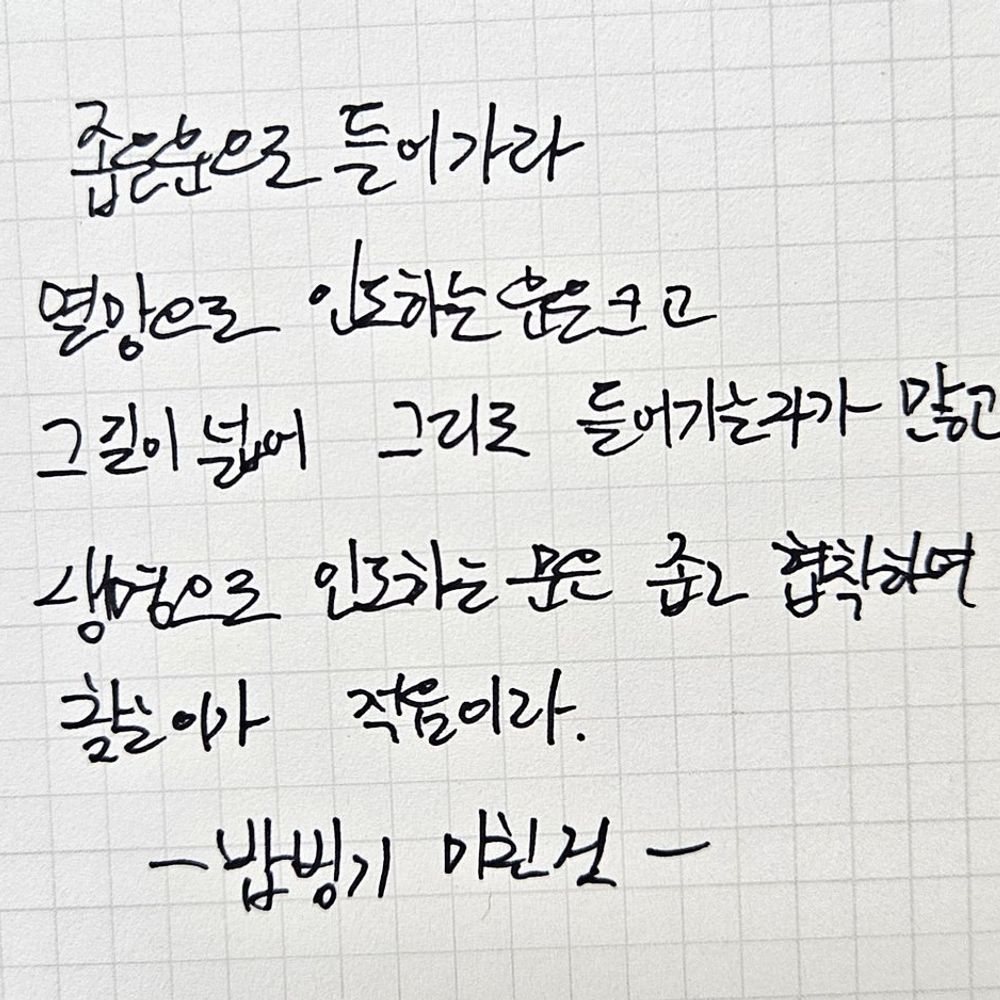 좁은문으로 들어가라
멸망으로 인도하는 문은 크고
그 길이 넓어 그리로 들어가는 자가 많고
생명으로 인도하는 문은 좁고 협착하여
찾는 이가 적음이라.